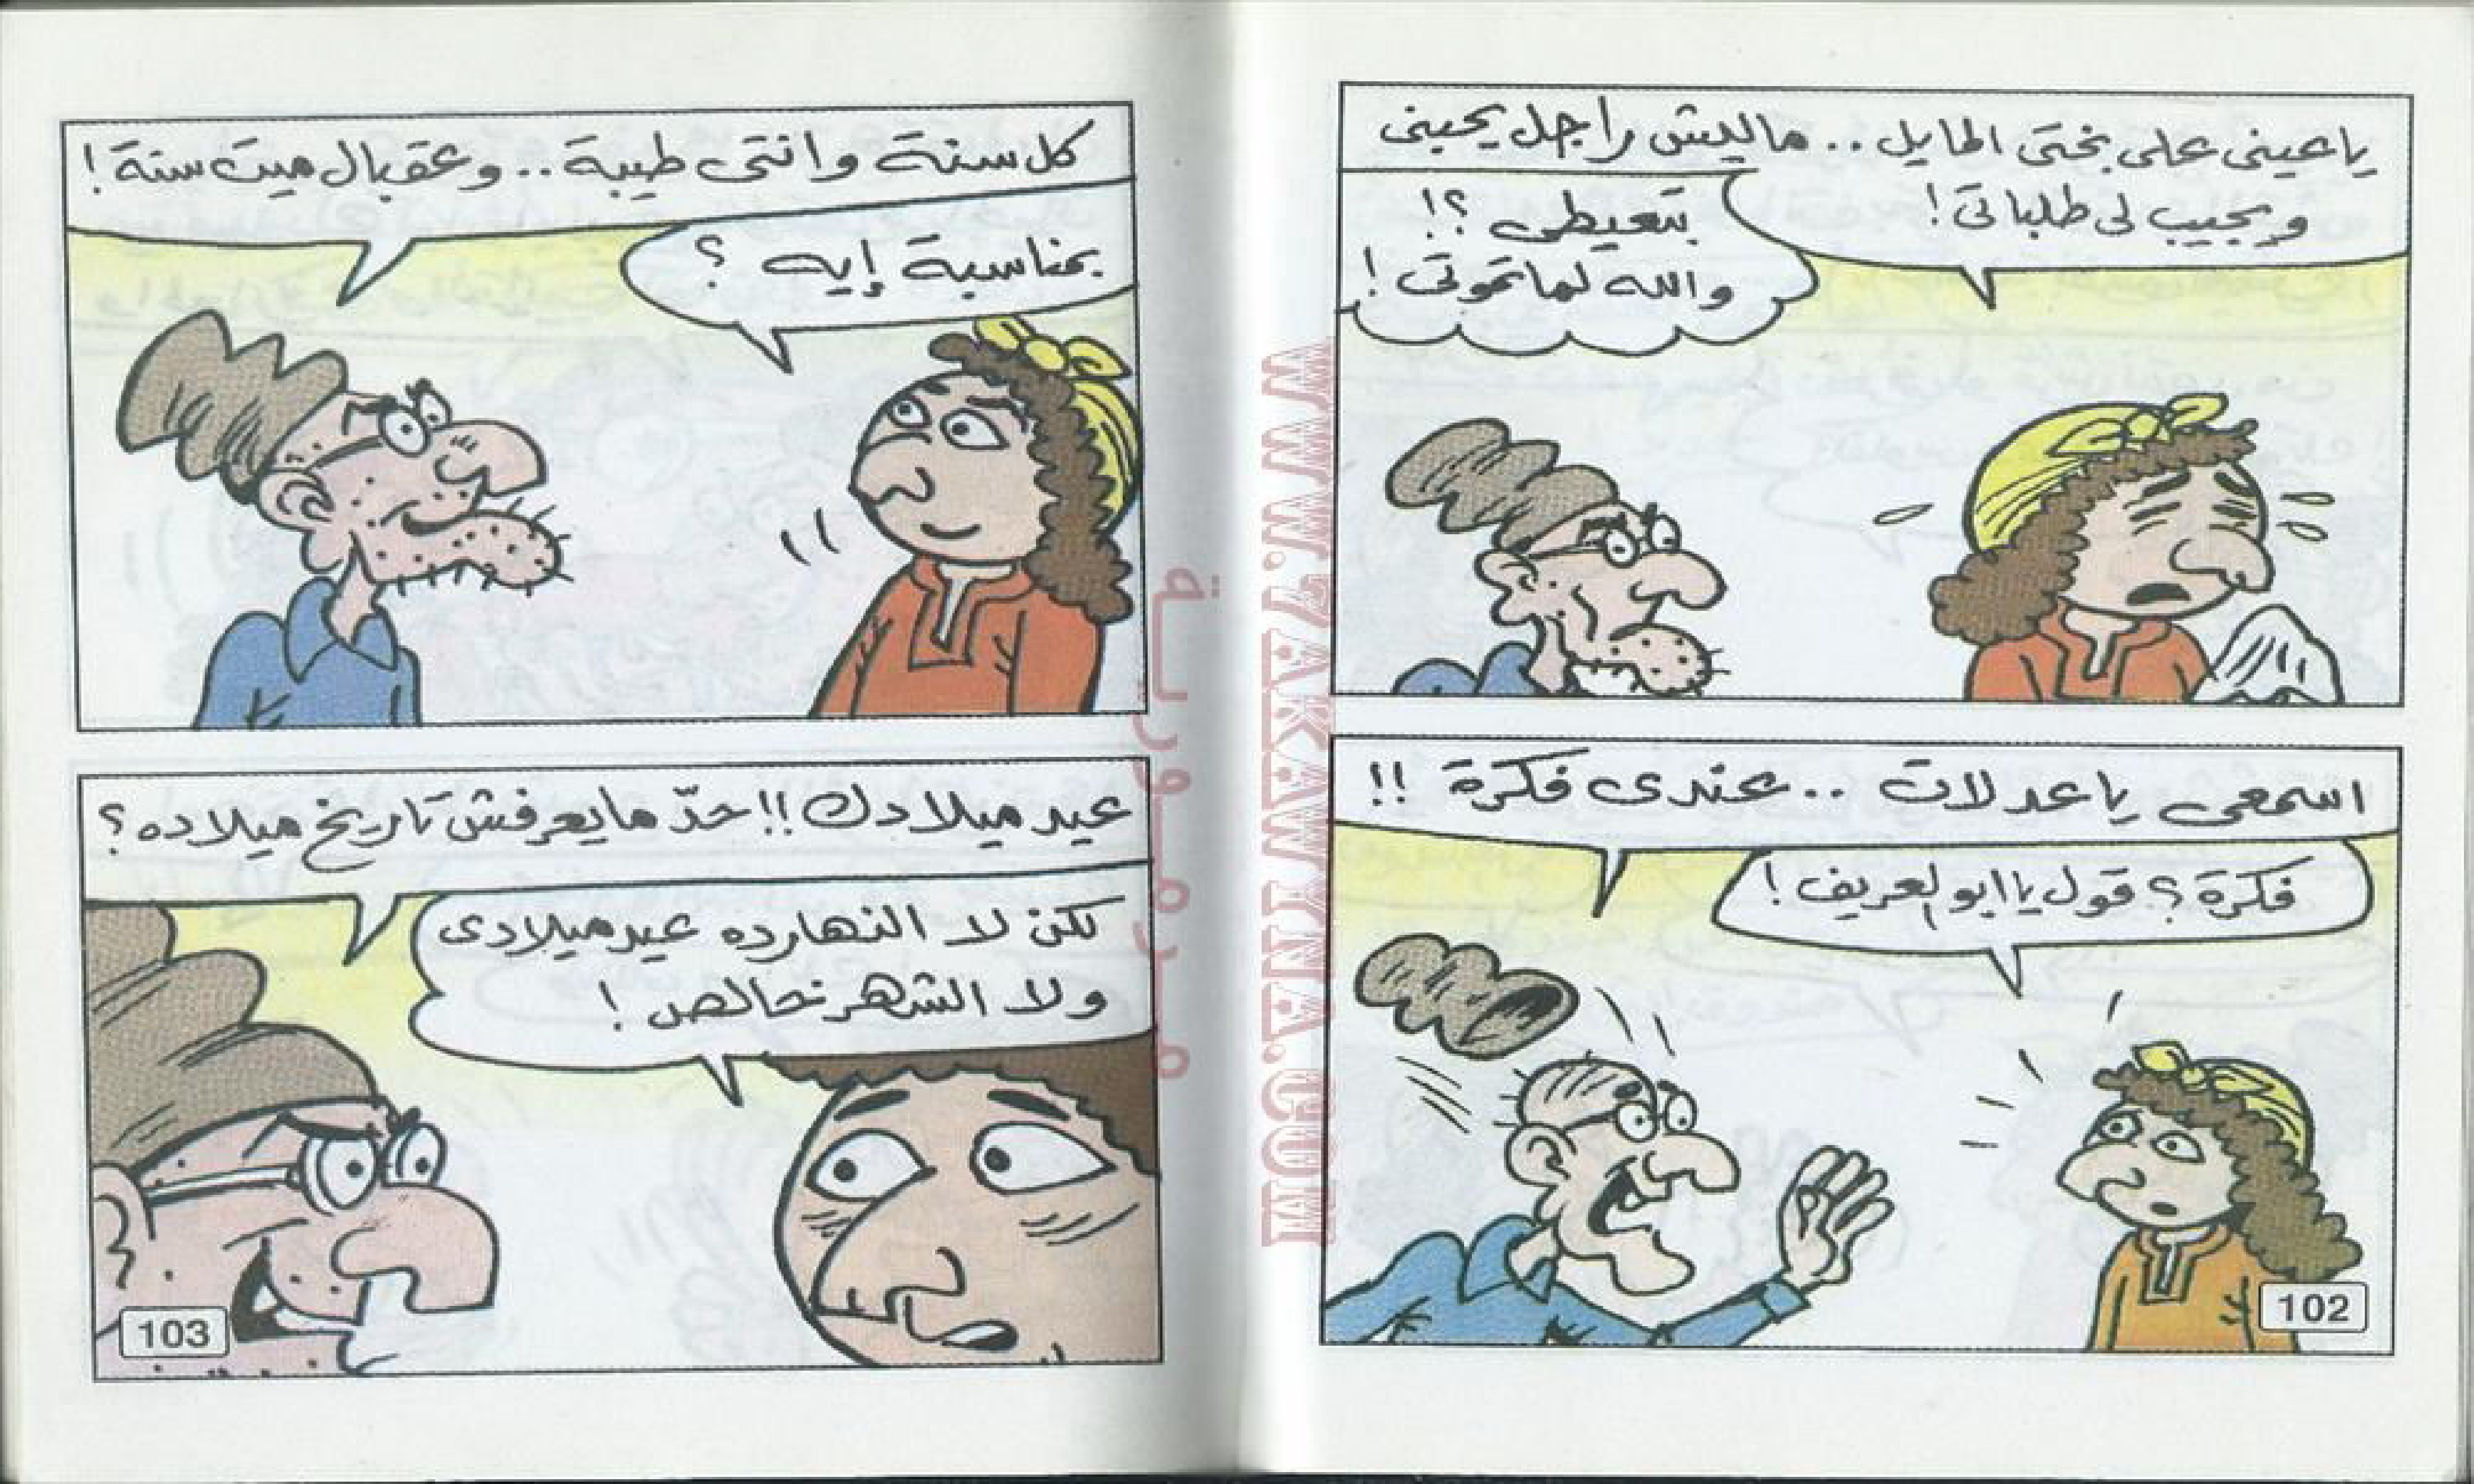 يا عينى على بختى المايل .. ماليش راجل يحبنى
ويجيب لى طلباتى !
بتعيطى ؟!
والله لما تموتى !
اسمعى يا عدلات .. عندى فكرة !!
فكرة ؟ قول يا ابو العريف !
102
كل سنة وانتى طيبة .. وعقبال ميت سنة !
بمناسبة إيه ؟
عيد ميلادك !! حدّ ما يعرفش تاريخ ميلاده ؟
لكن لا النهارده عيد ميلادى
ولا الشهر خالص !
103
WWW.7AKAWINA.COM